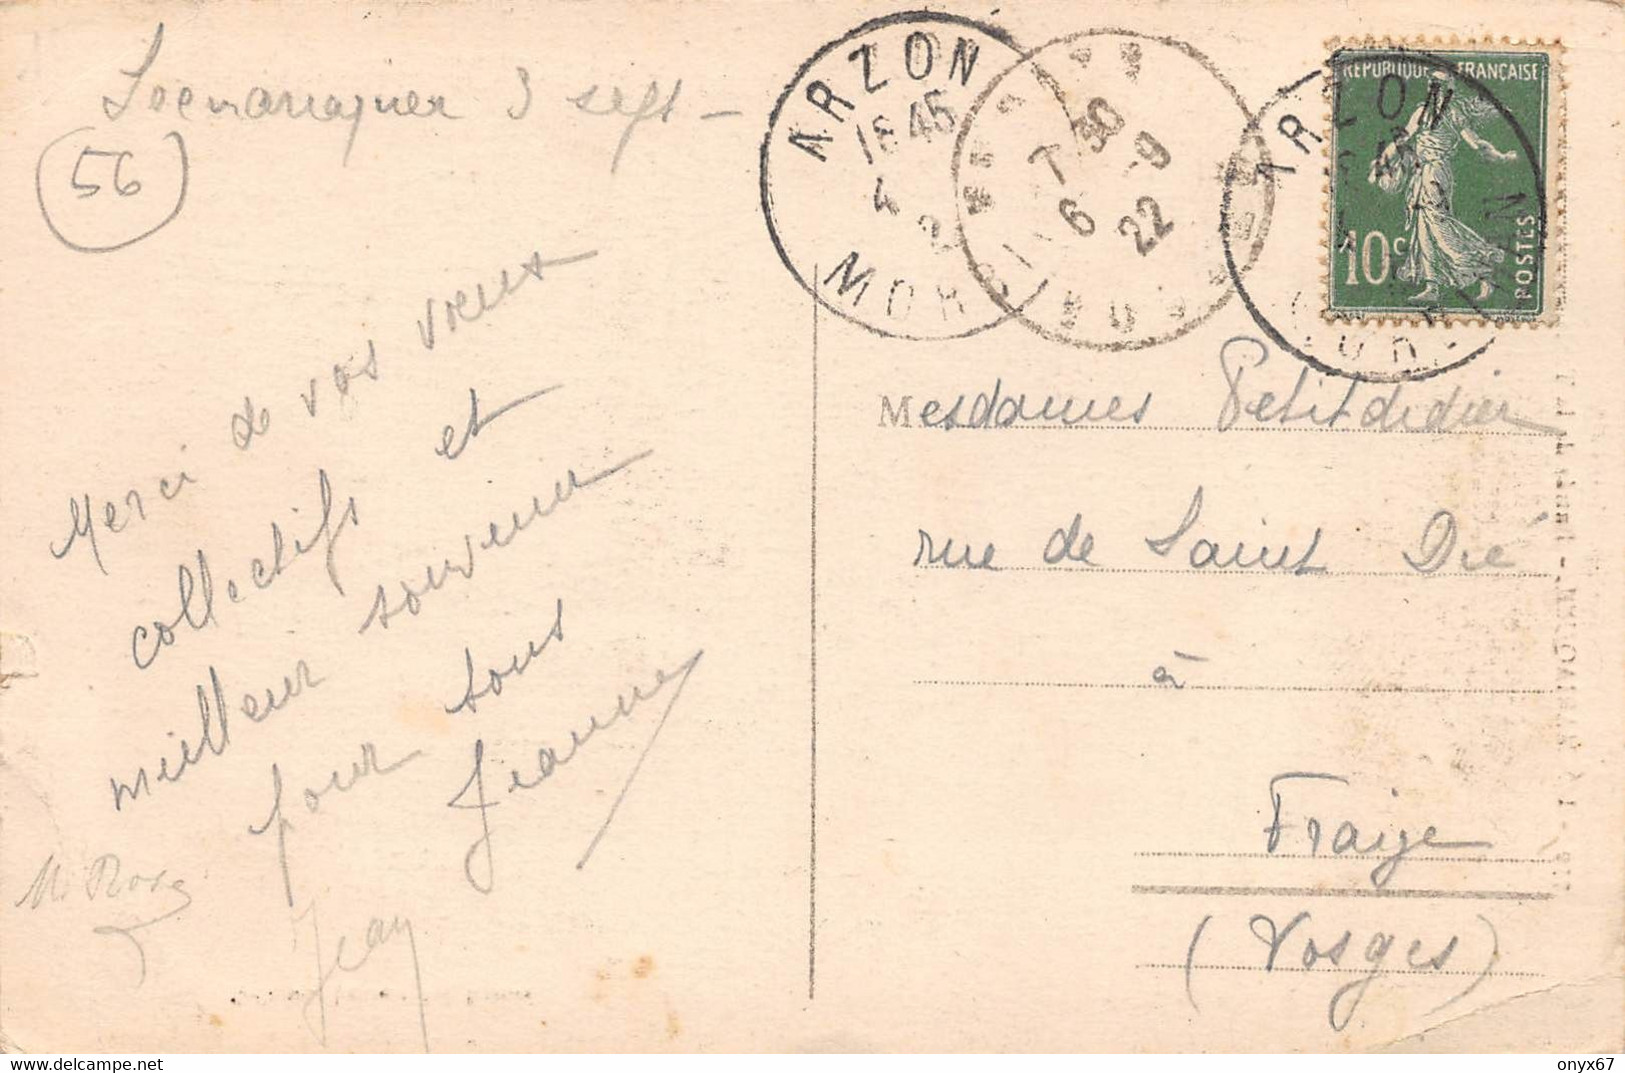 Locmariaquer 3 sept -
56
Merci de vos vœux
collectifs et
meilleur souvenir
pour tous
Jeanne
M. Rose
Jean
ARZON
16 45
4
2
MORBI
7 30
6 -9
22
ARZON
RÉPUBLIQUE FRANÇAISE
10c
POSTES
Mesdames Petitdidier
rue de Saint Dié
à
Fraize
(Vosges)
onyx67